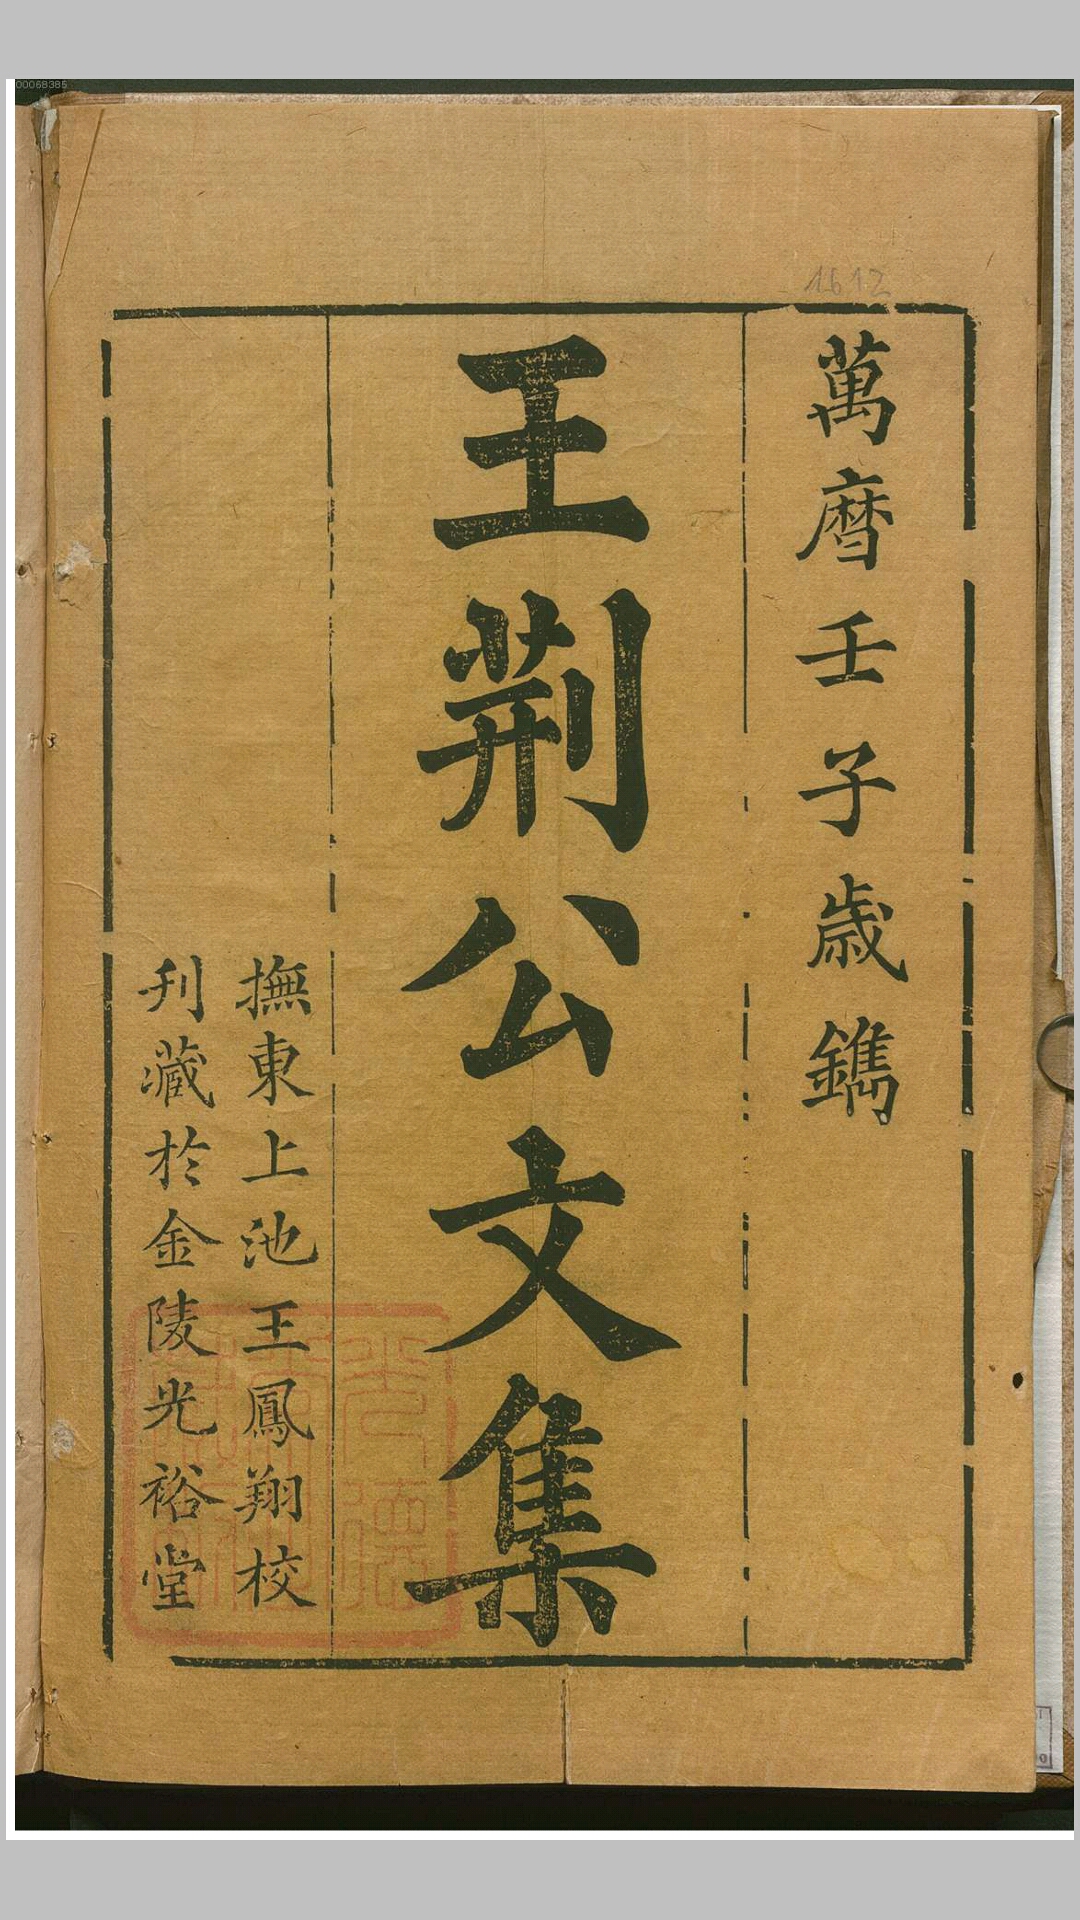 00068385
1612
萬曆壬子歳鐫
王荆公文集
撫東上池王鳳翔校
刋藏於金陵光裕堂